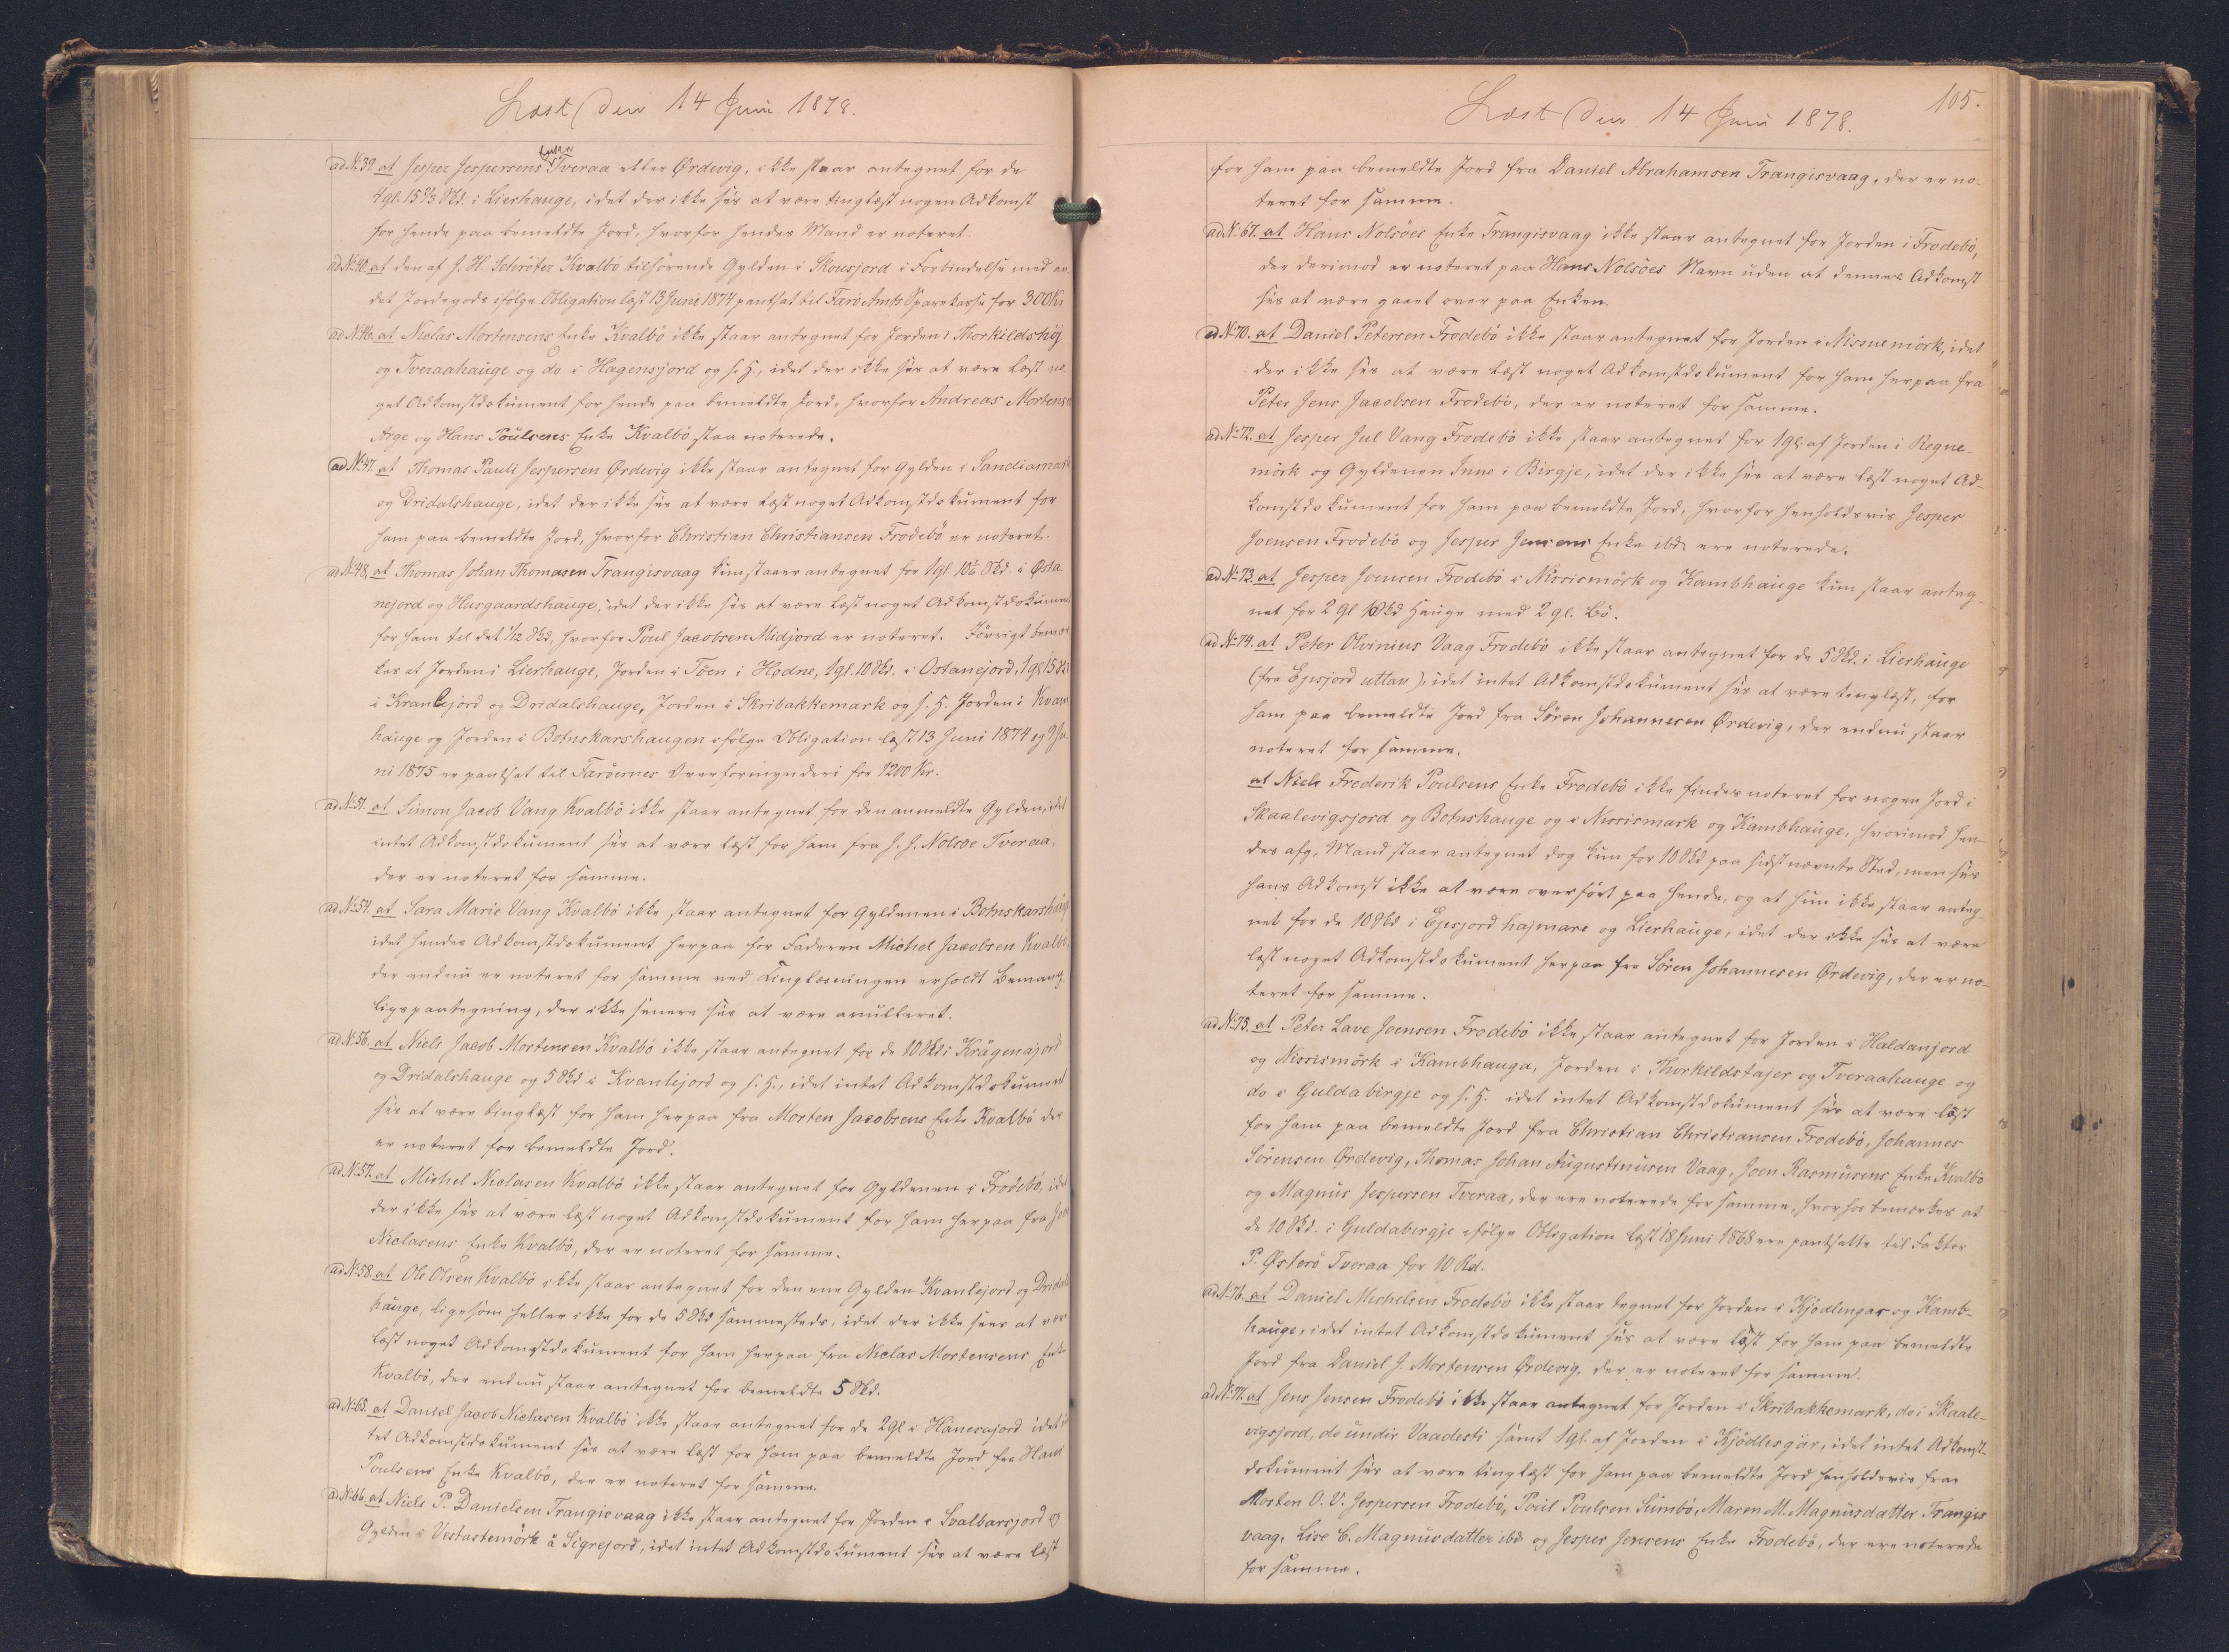 Læst den 14 Juni 1878.
ad No 39. at Jesper Jespersens Enke Tveraa eller Ørdevig, ikke staar antegnet for de
4 gl. 15⅔ Skd. i Lierhauge, idet der ikke sees at være tinglæst nogen Adkomst
for hende paa bemeldte Jord, hvorfor hendes Mand er noteret.
ad No 40. at den af J. H. Schrøter Kvalbö tilhørende Gylden i Skousjord i Forbindelse med an
det Jordegods ifølge Obligation læst 13 Juni 1874 pantsat til Færö Amts Sparekasse for 300 Kr
ad No 46. at Niclas Mortensens Enke Kvalbö ikke staar antegnet for Jorden i Thorkildshöj
og Tveraahauge og do i Hagensjord og s. H, idet der ikke sees at være læst no
get Adkomstdokument for hende paa bemeldte Jord, hvorfor Andreas Mortensen
Arge og Hans Poulsens Enke Kvalbö staa noterede.
ad No 47. at Thomas Pauli Jespersen Ørdevig ikke staar antegnet for Gylden i Sandiamark
og Dridalshauge, idet der ikke sees at være læst noget Adkomstdokument for
ham paa bemeldte Jord, hvorfor Christian Christiansen Frodebö er noteret.
ad No 48. at Thomas Johan Thomasen Trangisvaag kun staaer antegnet for 1 gl 10⅙ Skd. i Østa
nejord og Husgaardshauge, idet der ikke sees at være læst noget Adkomstdokument
for ham til det 1/12 Skd, hvorfor Poul Jacobsen Midjord er noteret. Iövrigt bemær
kes at Jorden i Lierhauge, Jorden i Töen i Hodne, 1 gl. 10 Skd. i Ostanejord, 1 gl 15 Skd
i Kranlejord og Dridalshauge, Jorden i Skribakkemark og s. H. Jorden i Kvam
hauge og Jorden i Botnskarshaugen ifølge Obligation læst 13 Juni 1874 og 9 Ju
ni 1875 er pantsat til Færöernes Overformynderi for 1200 Kr.
ad No 51. at Simon Jacob Vang Kvalbö ikke staar antegnet for den anmeldte Gylden, idet
intet Adkomstdokument sees at være læst for ham fra J. J. Nolsøe Tveraa,
der er noteret for samme.
ad No 54. at Sara Marie Vang Kvalbö ikke staar antegnet for Gyldenen i Botnskarshauge
idet hendes Adkomstdokument herpaa for Faderen Michel Jacobsen Kvalbö,
der endnu er noteret for samme ved Tinglæsningen erholdt Bemærk
ligspaategning, der ikke senere sees at være anulleret.
ad No 56. at Niels Jacob Mortensen Kvalbö ikke staar antegnet for de 10 Skd i Krågenajord
og Dridalshauge og 5 Skd i Kvanlejord og s. H., idet intet Adkomstdokument
sees at være tinglæst for ham herpaa fra Morten Jacobsens Enke Kvalbö der
er noteret for bemeldte Jord.
ad No 57. at Michel Niclasen Kvalbö ikke staar antegnet for Gyldenen i Frodebö, idet
der ikke sees at være læst noget Adkomstdokument for ham herpaa fra
Niclasens Enke Kvalbö, der er noteret for samme.
ad No 58. at Ole Olsen Kvalbö ikke staar antegnet for den ene Gylden Kvanlejord og Dridals
hauge, ligesom heller ikke for de 5 Skd sammesteds, idet der ikke sees at være
læst noget Adkomstdokument for ham herpaa fra Niclas Mortensens Enke
Kvalbö, der endnu staar antegnet for bemeldte 5 Skd.
ad No 65. at Daniel Jacob Niclasen Kvalbö ikke staar antegnet for de 2 gl i Hanesajord idet in
tet Adkomstdokument sees at være læst for ham paa bemeldte Jord fra Hans
Poulsens Enke Kvalbö, der er noteret for samme.
ad No 66. at Niels P. Danielsen Trangisvaag ikke staar antegnet for Jorden i Svalbarsjord og
Gylden i Vestastemörk å Sigrejord, idet intet Adkomstdokument sees at være læst
105.
Læst den 14 Juni 1878.
for ham paa bemeldte Jord fra Daniel Abrahamsen Trangisvaag, der er no-
teret for samme.
ad No 67. at Hans Nolsöes Enke Trangisvaag ikke staar antegnet for Jorden i Frodebö,
der derimod er noteret paa Hans Nolsöes Navn uden at dennes Adkomst
sees at være gaaet over paa Enken.
ad No 70. at Daniel Petersen Frodebö ikke staar antegnet for Jorden i Nissuemörk, idet
der ikke sees at være læst noget Adkomstdokument for ham herpaa fra
Peter Jens Jacobsen Frodebö, der er noteret for samme.
ad No 72. at Jesper Jul Vang Frodebö ikke staar antegnet for 1 gl. af Jorden i Regne-
mörk og Gyldenen Inne i Birgje, idet der ikke sees at være læst noget Ad-
komstdokument for ham paa bemeldte Jord, hvorfor henholdsvis Jesper
Joensen Frodebö og Jesper Jensens Enke ibd. ere noterede.
ad No 73. at Jesper Joensen Frodebö i Nissismörk og Kambhauge kun staar anteg-
net for 2 gl 10 Skd Hauge med 2 gl. Bö.
ad No 74. at Peter Olvinius Vaag Frodebö ikke staar antegnet for de 5 Skd. i Lierhauge
(fra Ejesjord uttan), idet intet Adkomstdokument sees at være tinglæst, for
ham paa bemeldte Jord fra Sören Johannesen Ørdevig, der endnu staar
noteret for samme.
at Niels Frederik Poulsens Enke Frodebö ikke findes noteret for nogen Jord i
Skaalevigsjord og Botnshauge og i Nissismark og Kambhauge, hvorimod hen-
des afg. Mand staar antegnet dog kun for 10 Skd paa sidstnævnte Sted, men sees
hans Adkomst ikke at være overført paa hende, og at hun ikke staar anteg-
net for de 10 Skd i Ejesjord hajmare og Lierhauge, idet der ikke sees at være
læst noget Adkomstdokument herpaa fra Sören Johannesen Ørdevig, der er no-
teret for samme.
ad No 75. at Peter Lave Joensen Frodebö ikke staar antegnet for Jorden i Haldanjord
og Nissismörk i Kambhauga, Jorden i Thorkildstajer og Tveraahauge og
do i Guldabirgje og s. H. idet intet Adkomstdokument sees at være læst
for ham paa bemeldte Jord fra Christian Christiansen Frodebö, Johannes
Sörensen Ørdevig, Thomas Johan Augustinusen Vaag, Joen Rasmusens Enke Kvalbö
og Magnus Jespersen Tveraa, der ere noterede for samme, hvorhos bemærkes at
de 10 Skd. i Guldabirgje ifølge Obligation læst 18 Juni 1868 ere pantsatte til Faktor
P. Østerö Tveraa for 10 Rd.
ad No 76. at Daniel Michelsen Frodebö ikke staar tegnet for Jorden i Kjödlingar og Kamb-
hauge, idet intet Adkomstdokument sees at være læst for ham paa bemeldte
Jord fra Daniel J. Mortensen Ørdevig, der er noteret for samme.
ad No 77. at Jens Jensen Frodebö ikke staar antegnet for Jorden i Skribakkemark, do i Skaale-
vigsjord, do undir Vaadesti samt 1 gl. af Jorden i Kjödlesgar, idet intet Adkomst-
dokument sees at være tinglæst for ham paa bemeldte Jord henholdsvis fra
Morten O. V. Jespersen Frodebö, Poul Poulsen Sumbö, Maren M. Magnusdatter Trangis
vaag, Lise C. Magnusdatter ibd og Jesper Jensens Enke Frodebö, der ere noterede
for samme.